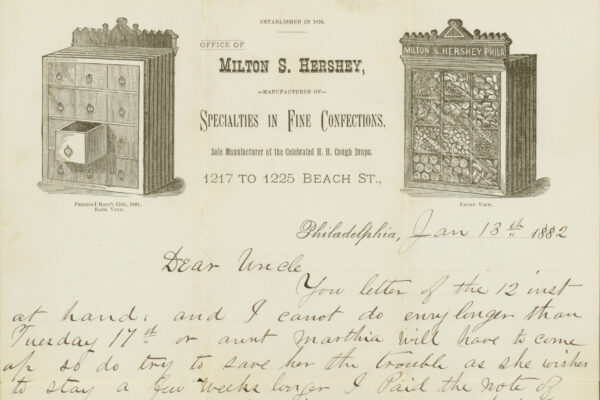 ESTABLISHED IN 1876.
OFFICE OF
MILTON S. HERSHEY,
—MANUFACTURER OF—
SPECIALTIES IN FINE CONFECTIONS,
Sole Manufacturer of the Celebrated H. H. Cough Drops.
1217 TO 1225 BEACH ST.,
MILTON S. HERSHEY, PHILA
Patented March 15th, 1881.
BACK VIEW.
FRONT VIEW.
Philadelphia, Jan 13th 1882
Dear Uncle
You letter of the 12 inst
at hand. and I canot do enny longer than
Tuesday 17th or aunt Marthia will have to come
up so do try to save her the trouble as she wishes
to stay a few weeks longer I Paid the note of